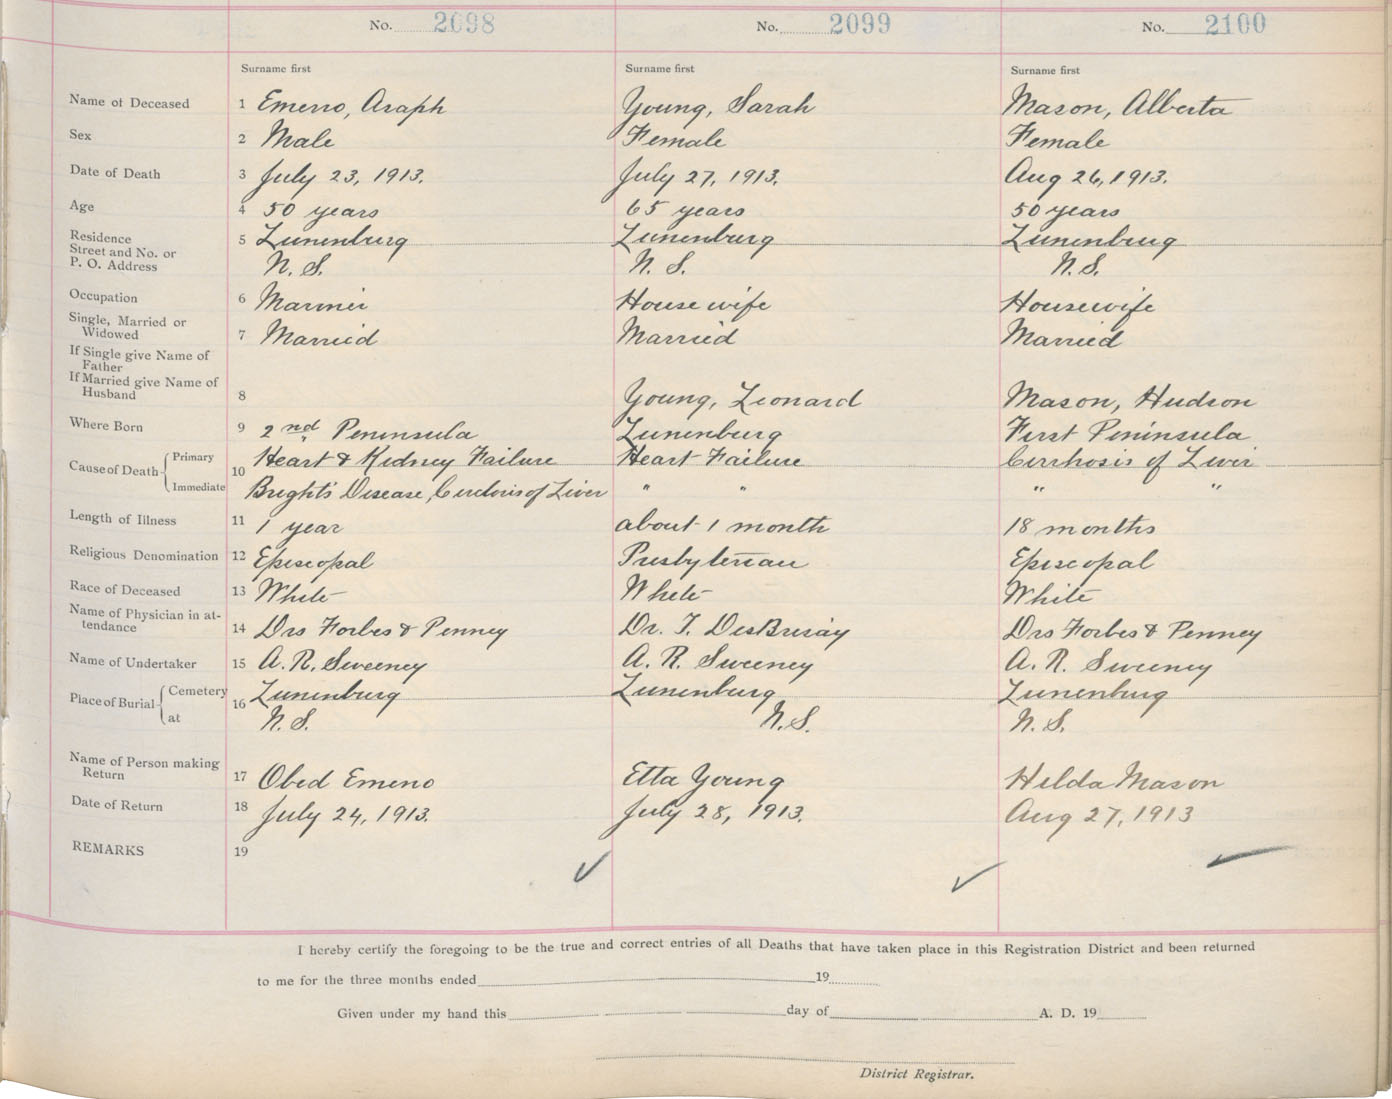 No. 2098 No. 2099 No. 2100
Surname first Surname first Surname first
Name of Deceased 1 Emeno, Asaph Young, Sarah Mason, Alberta
Sex 2 Male Female Female
Date of Death 3 July 23, 1913. July 27, 1913. Aug 26, 1913.
Age 4 50 years 65 years 50 years
Residence 5 Lunenburg Lunenburg Lunenburg
Street and No. or
P. O. Address N. S. N. S. N. S.
Occupation 6 Mariner House wife Housewife
Single, Married or
Widowed 7 Married Married Married
If Single give Name of
Father
If Married give Name of
Husband 8 Young, Leonard Mason, Hudson
Where Born 9 2nd Peninsula Lunenburg First Peninsula
Cause of Death Primary 10 Heart & Kidney Failure Heart Failure Cirrhosis of Liver
Immediate Bright's Disease, Cirrhosis of Liver " " " "
Length of Illness 11 1 year about 1 month 18 months
Religious Denomination 12 Episcopal Presbyterian Episcopal
Race of Deceased 13 White White White
Name of Physician in at-
tendance 14 Drs Forbes & Penney Dr. T. DesBrisay Drs Forbes & Penney
Name of Undertaker 15 A. R. Sweeney A. R. Sweeney A. R. Sweeney
Place of Burial Cemetery 16 Lunenburg Lunenburg Lunenburg
at N. S. N. S. N. S.
Name of Person making
Return 17 Obed Emeno Etta Young Hilda Mason
Date of Return 18 July 24, 1913. July 28, 1913. Aug 27, 1913
REMARKS 19
I hereby certify the foregoing to be the true and correct entries of all Deaths that have taken place in this Registration District and been returned
to me for the three months ended 19
Given under my hand this day of A. D. 19
District Registrar.